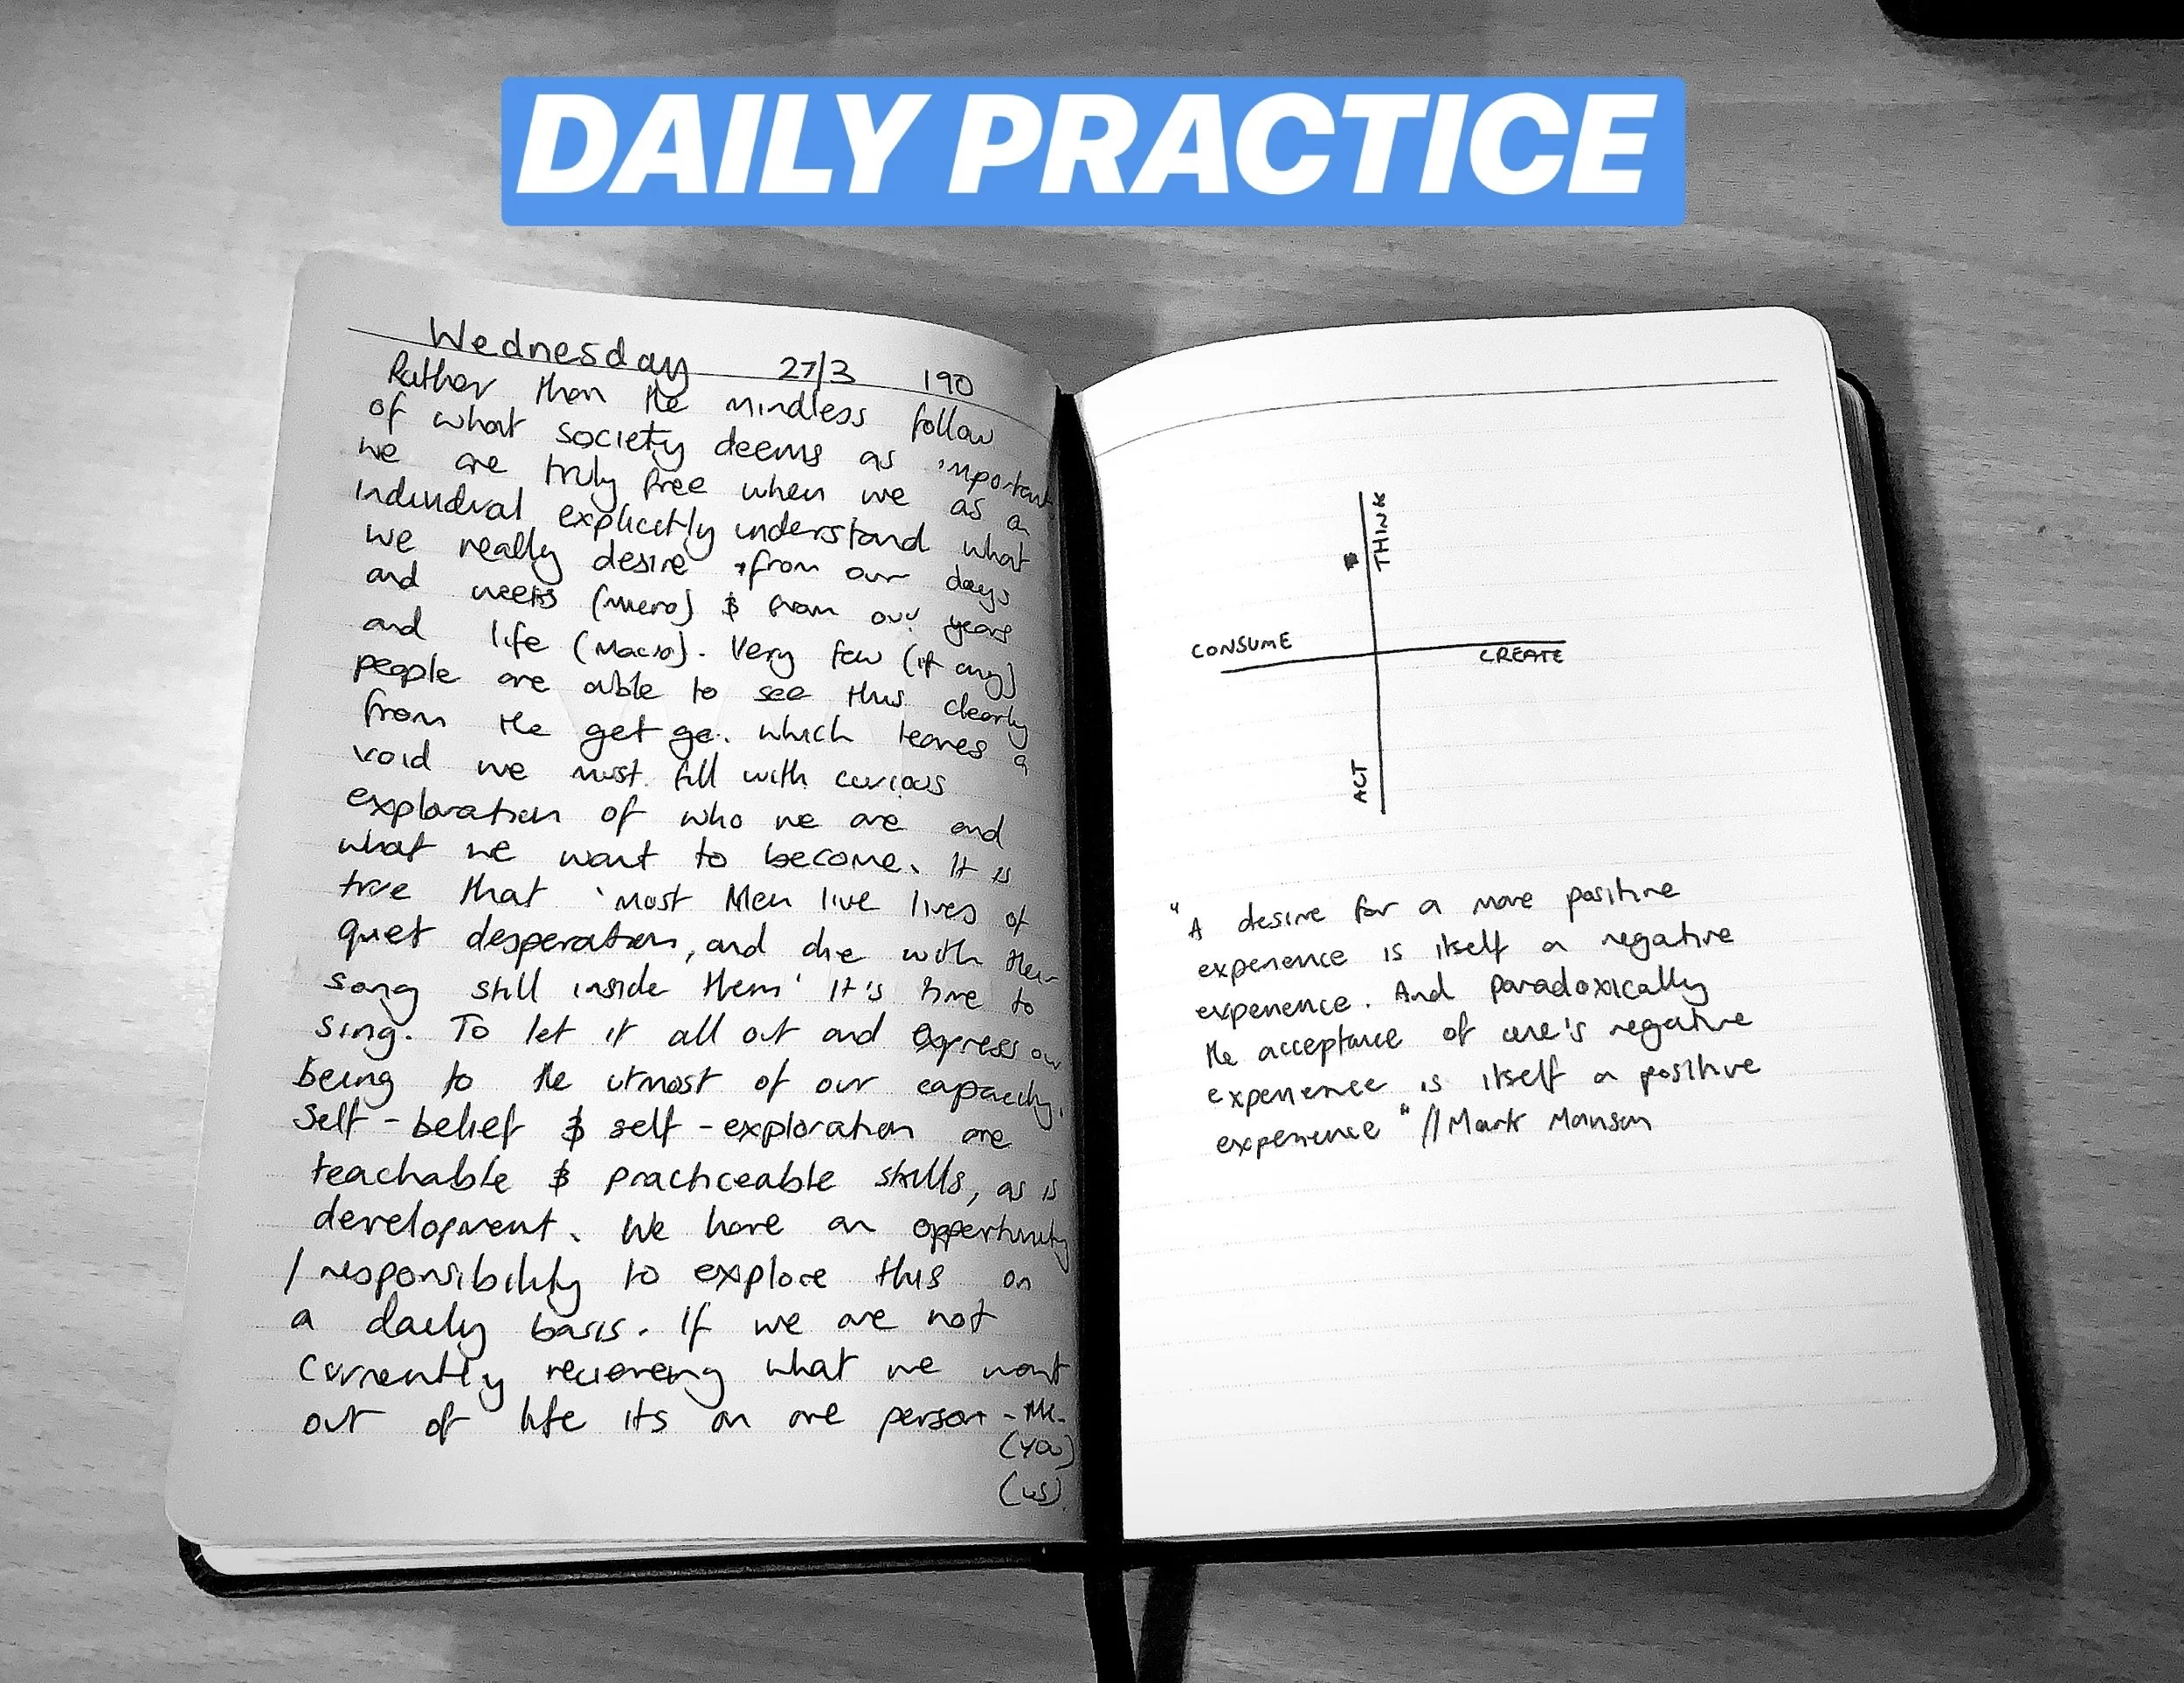 DAILY PRACTICE
Wednesday 27/3 190
Rather then the mindless follow
of what society deems as important
we are truly free when we as a
individual explicitly understand what
we really desire from our days
and weeks (Micro) & from our years
and life (Macro). Very few (if any)
people are able to see this clearly
from the get go. which leaves a
void we must fill with curious
exploration of who we are and
what we want to become. It is
true that 'most Men live lives of
quiet desperation, and die with their
song still inside them' It's time to
sing. To let it all out and express our
being to the utmost of our capacity.
Self-belief & self-exploration are
teachable & practiceable skills, as is
development. We have an opportunity
/responsibility to explore this on
a daily basis. If we are not
currently what we want
out of life its on one person - Me.
(you)
(us).
THINK
CONSUME
CREATE
ACT
"A desire for a more positive
experience is itself a negative
experience. And paradoxically
the acceptance of one's negative
experience is itself a positive
experience" // Mark Manson